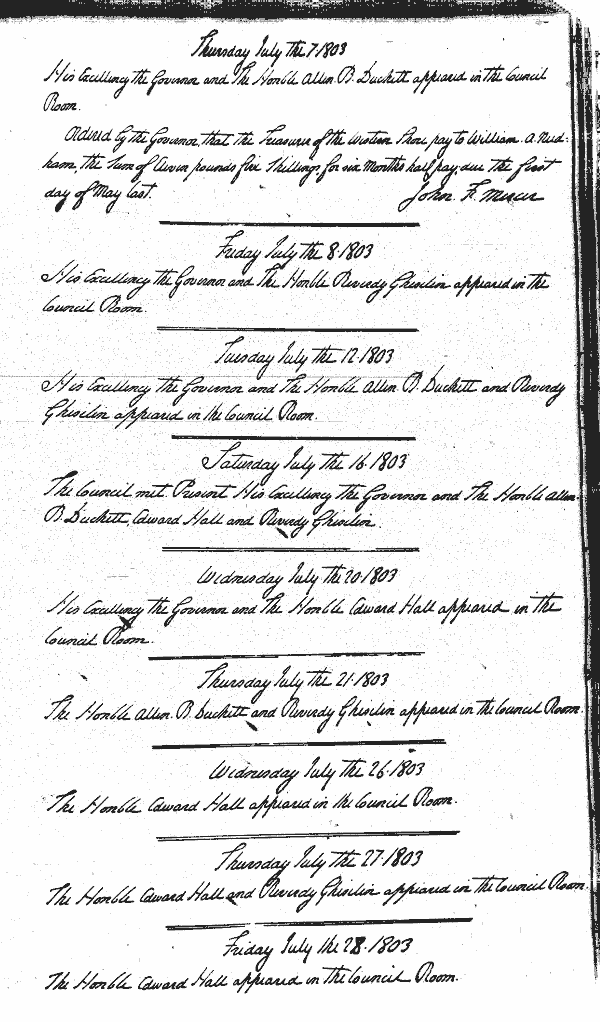 Thursday July the 7 1803
His Excellency the Governor and The Honble Allen B. Duckett appeared in the Council
Room.
Ordered by the Governor, that the Treasurer of the Western Shore pay to William. A. Need-
ham, the Sum of Seven pounds five Shillings, for six Months half pay, due the first
day of May last.
John. F. Mercer
Friday July the 8. 1803
His Excellency the Governor and The Honble Reverdy Ghiselin appeared in the
Council Room.
Tuesday July the 12. 1803
His Excellency the Governor and The Honble Allen B. Duckett and Reverdy
Ghiselin appeared in the Council Room.
Saturday July the 16. 1803
The Council met. Present His Excellency the Governor and The Honble Allen
B. Duckett, Edward Hall and Reverdy Ghiselin.
Wednesday July the 20. 1803
His Excellency the Governor and The Honble Edward Hall appeared in the
Council Room.
Thursday July the 21. 1803
The Honble Allen B. Duckett and Reverdy Ghiselin appeared in the Council Room.
Wednesday July the 26. 1803
The Honble Edward Hall appeared in the Council Room.
Thursday July the 27. 1803
The Honble Edward Hall and Reverdy Ghiselin appeared in the Council Room.
Friday July the 28. 1803
The Honble Edward Hall appeared in the Council Room.